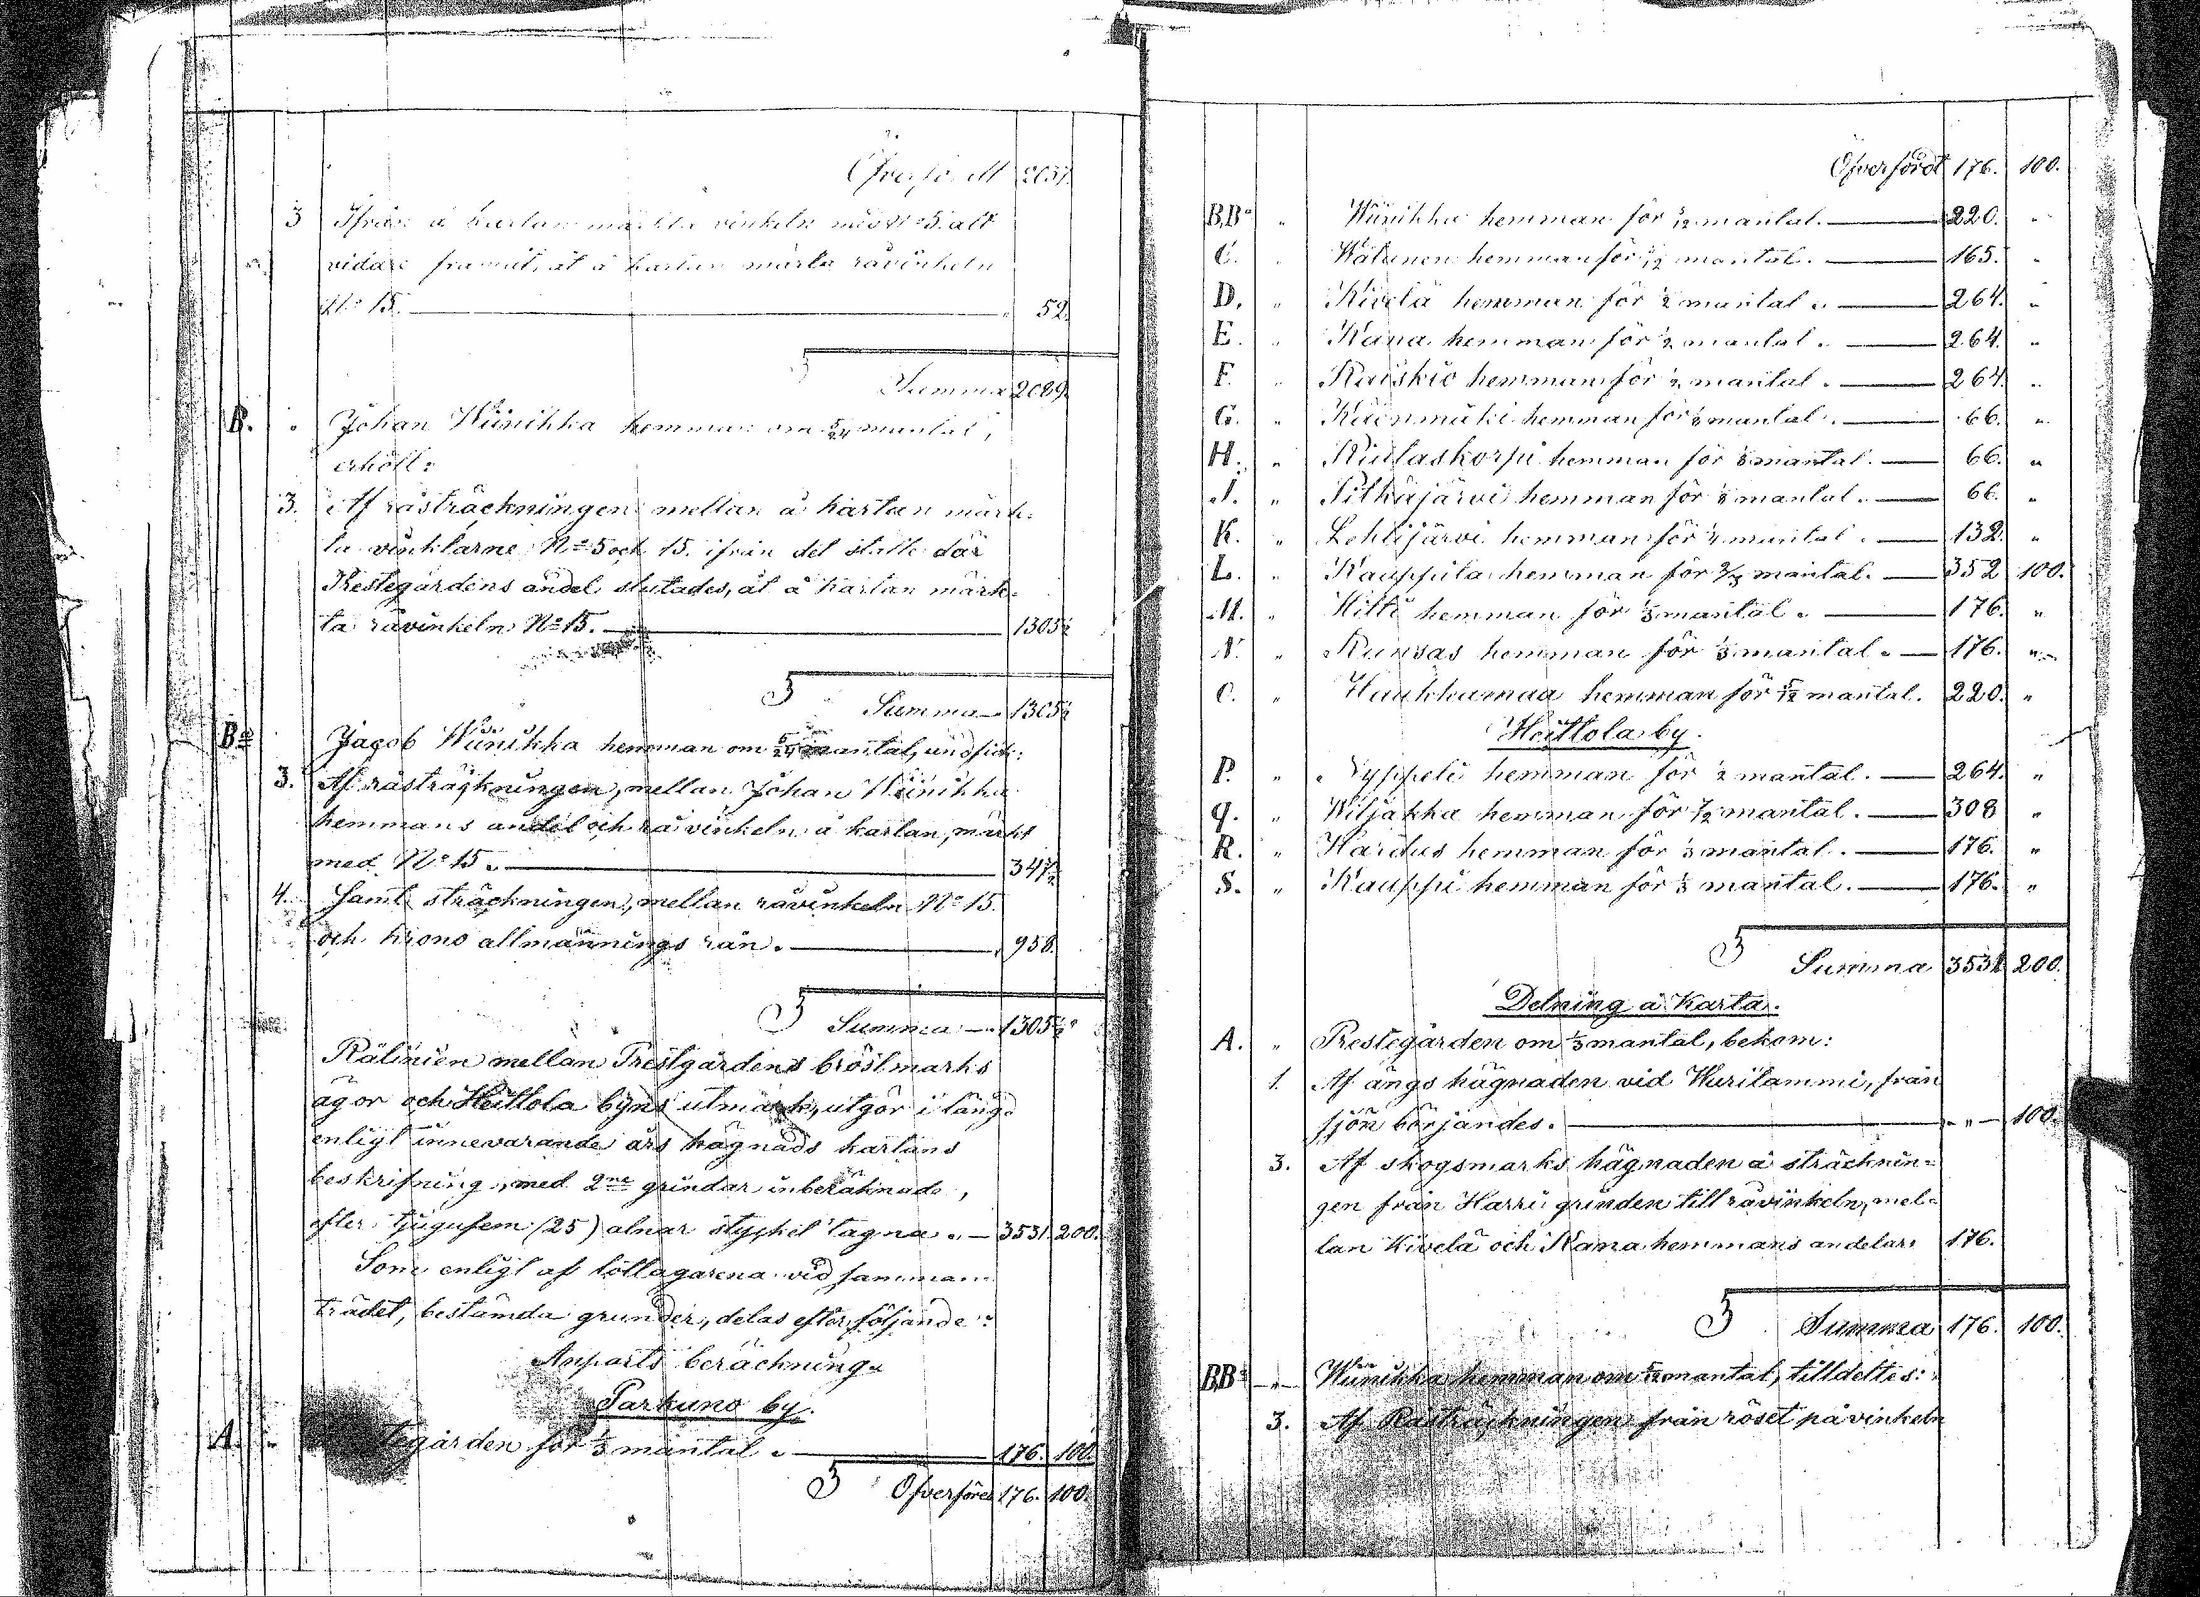 Öfverfördt 2037.
3 Ifrån å kartan märkta vinkeln med No 5. alt
vidare framåt, åt å kartan märkta råvinkeln
No 15. 52.
Summa 2089.
B. " Johan Wiinikka hemman om 5/24 mantal,
erhöll:
3. Af råsträckningen mellan å kartan märk-
ta vinklarne No 5 och 15. ifrån det ställe där
Prestegårdens andel slutades, åt å kartan märk-
ta råvinkeln No 15. 1305½
Summa 1305½
Ba Jacob Wiinikka hemman om 5/24 mantal, undfick:
3. Af råsträckningen, mellan Johan Wiinikka
hemmans andel och råvinkeln å kartan, märkt
med No 15. 347½
4. Samt sträckningen, mellan råvinkeln No 15.
och krono allmännings rån. 958.
Summa 1305½
Rålinien mellan Prestgårdens bröstmarks
ägor och Heittola byns utmark, utgör i längd
enligt innevarande års hägnads kartans
beskrifning, med 2ne grindar inberäknade,
efter tjugufem (25) alnar stycket tagna. 3531. 200.
Som enligt af lottagarena vid samman-
trädet, bestämda grunder, delas efter följande:
Anparts beräckning.
Parkuno by.
A. " tegården för 1/3 mantal. 176. 100.
Öfverföres 176. 100.
Öfverfördt 176. 100.
B,Ba " Wiinikka hemman för 5/12 mantal. 220. "
C. " hemman för mantal. 165. "
D. " Kivelä hemman för ½ mantal. 264. "
E. " Kana hemman för ½ mantal. 264. "
F. " Raiskio hemman för ½ mantal. 264. "
G. " Käenmäki hemman för 1/8 mantal. 66. "
H. " hemman för 1/8 mantal. 66. "
J. " Pitkäjärvi hemman för 1/8 mantal. 66. "
K. " Lehtijärvi hemman för ¼ mantal. 132. "
L. " Kauppila hemman för 2/3 mantal. 352 100.
M. " hemman för 1/3 mantal. 176. "
N. " hemman för 1/3 mantal. 176. "
O. " Haukkamaa hemman för 5/12 mantal. 220. "
Heittola by.
P. " hemman för ½ mantal. 264. "
q. " Wiljakka hemman för 7/12 mantal. 308 "
R. " Hardus hemman för 1/3 mantal. 176. "
S. " Kauppi hemman för 1/3 mantal. 176. "
Summa 3531. 200.
Delning å Karta.
A. " Prestegården om 1/3 mantal, bekom:
1. Af ängs hägnaden vid Wurilammi, från
sjön börjandes. " 100.
3. Af skogsmarks hägnaden å sträcknin-
gen från Harri grinden till råvinkeln, mel-
lan Kivelä och Kana hemmans andelar. 176.
Summa 176. 100.
B,Ba " Wiinikka hemman om 5/12 mantal, tilldeltes:
3. Af Råsträckningen från röset på vinkeln